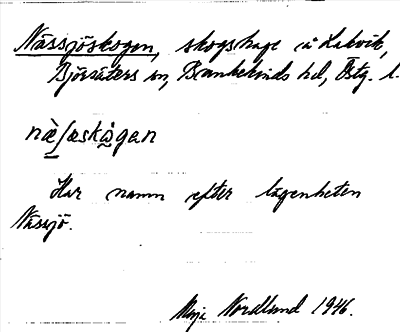 Nässjöskogen, skogshage å Lakvik,
Björsäters sn, Bankekinds hd, Östg. l.
næ̀ʃæskågan
Har namn efter lägenheten
Nässjö.
Maja Nordlund 1946.